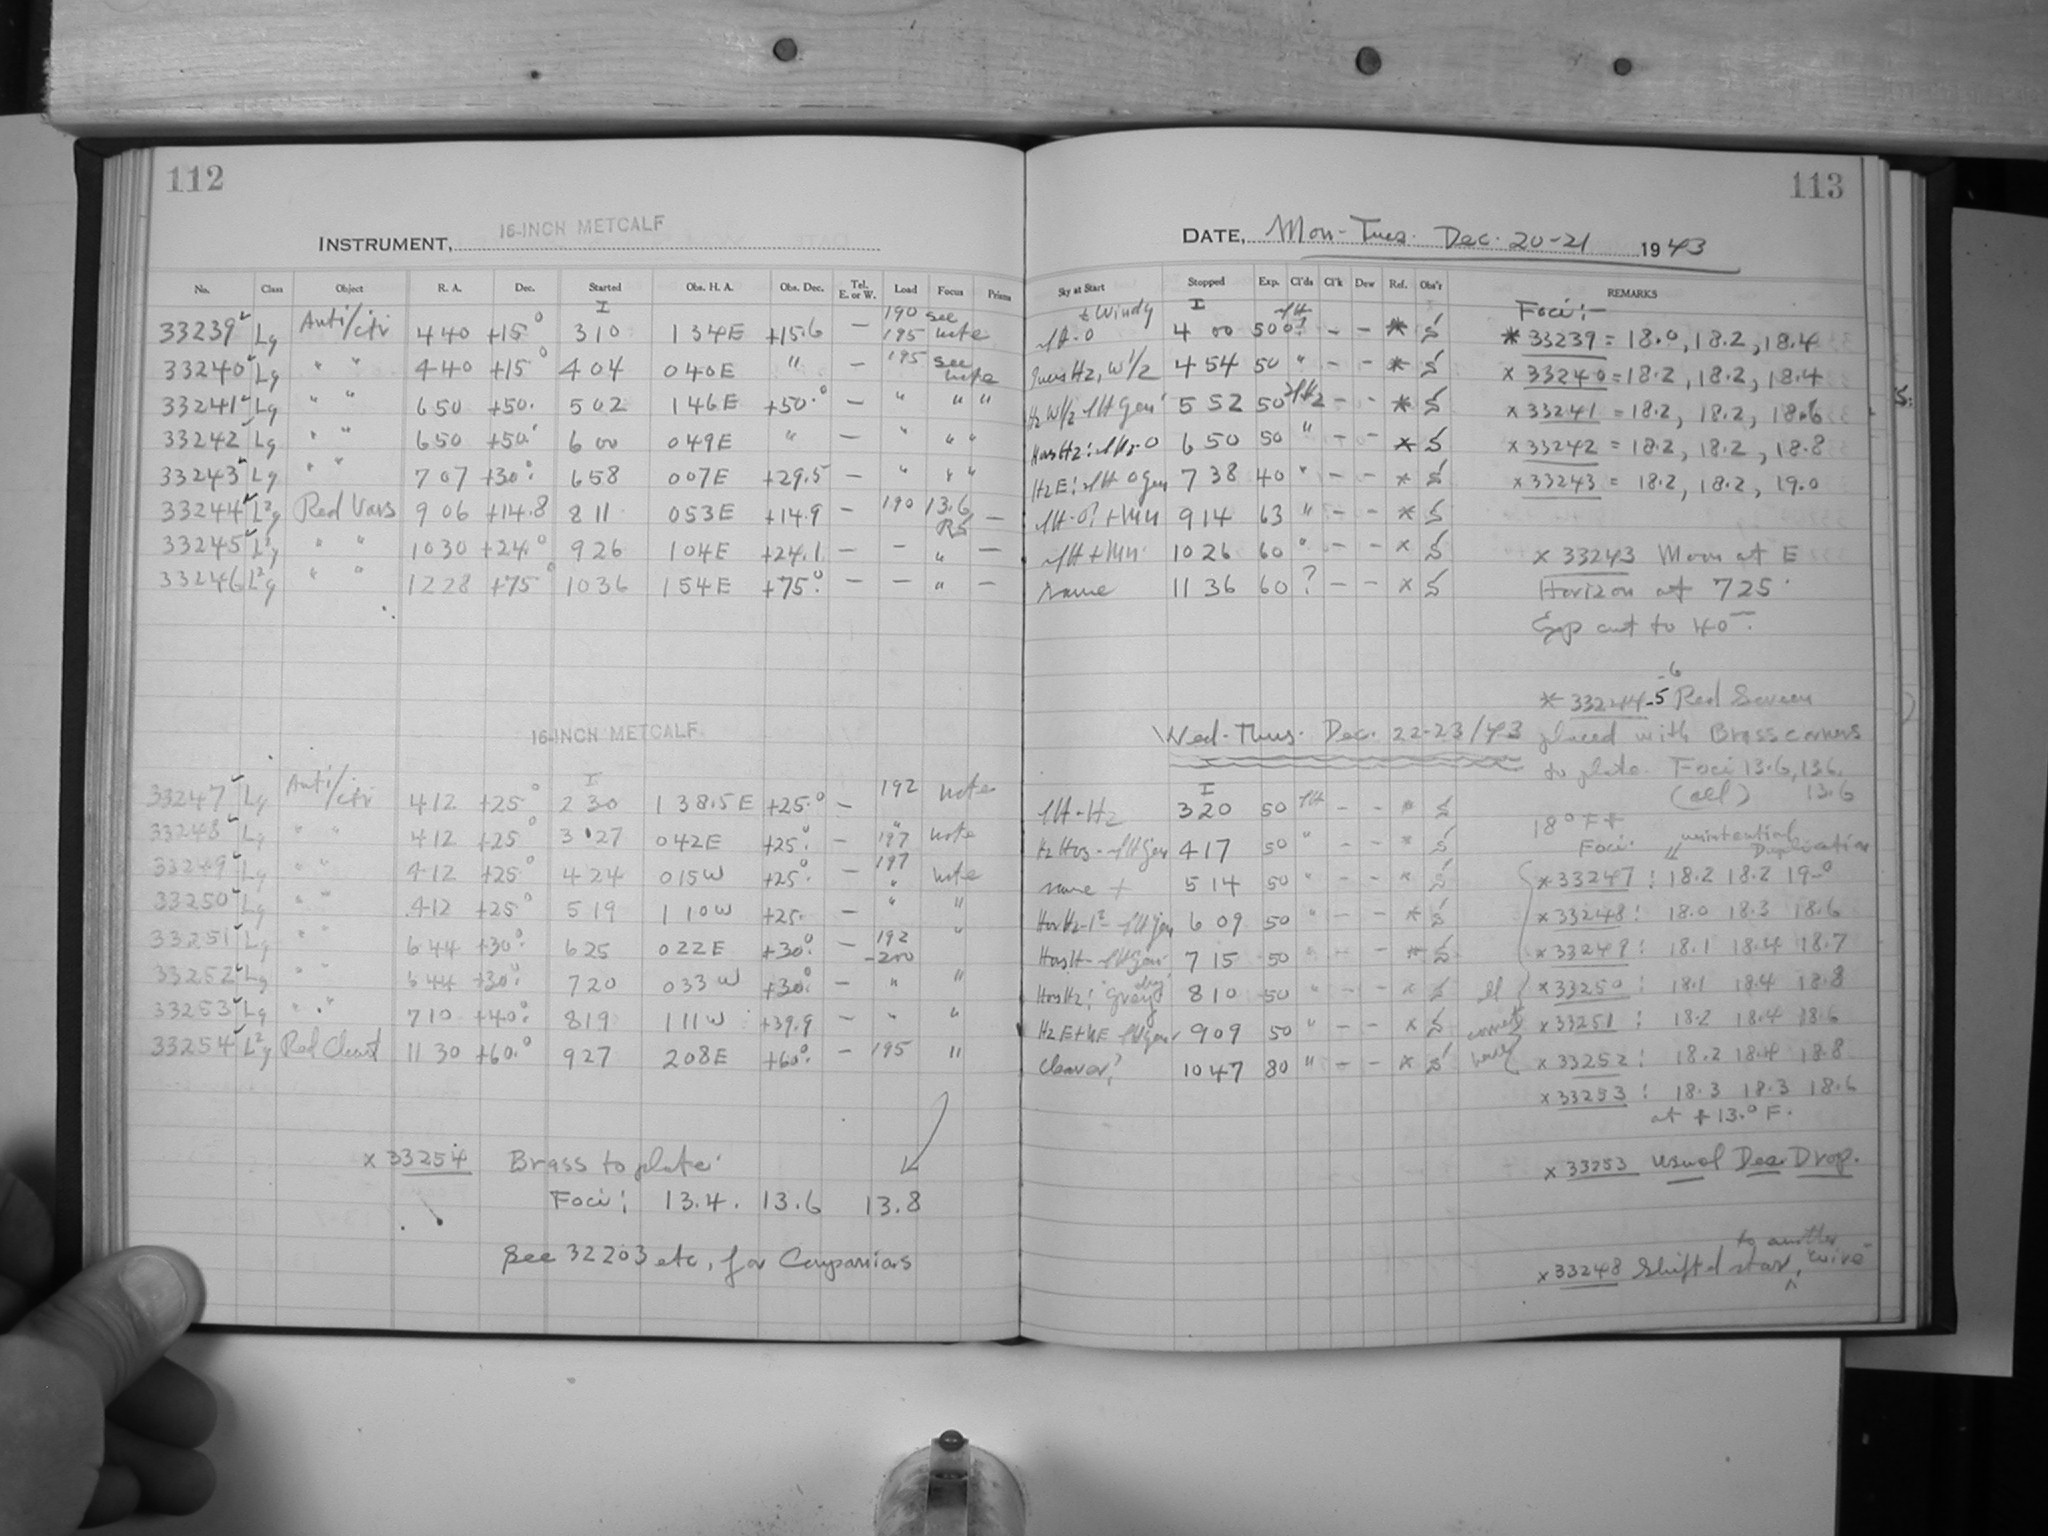 112
INSTRUMENT, 16-INCH METCALF
No. Class Object R. A. Dec. Started Obs. H. A. Obs. Dec. Tel. E. or W. Load Focus Prism
I
33239 Lg Anti/ctr 4 40 +15° 3 10 1 34 E +15.6 — 190 195 see note
33240 Lg " " 4 40 +15° 4 04 0 40 E " — 195 see note
33241 Lg " " 6 50 +50. 5 02 1 46 E +50.° — " " "
33242 Lg " " 6 50 +50. 6 00 0 49 E " — " " "
33243 Lg " " 7 07 +30. 6 58 0 07 E +29.5 — " " "
33244 L²g Red Vars 9 06 +14.8 8 11 0 53 E +14.9 — 190 13.6 RS —
33245 L²g " " 10 30 +24.° 9 26 1 04 E +24.1 — — " —
33246 L²g " " 12 28 +75° 10 36 1 54 E +75.° — — " —
16-INCH METCALF
I
33247 Lg Anti/ctr 4 12 +25° 2 30 1 38.5 E +25.° — 192 note
33248 Lg " " 4 12 +25° 3 27 0 42 E +25.° — " 197 note
33249 Lg " " 4 12 +25° 4 24 0 15 W +25.° — 197 note
33250 Lg " " 4 12 +25° 5 19 1 10 W +25. — " "
33251 Lg " " 6 44 +30.° 6 25 0 22 E +30.° — 192 -200 "
33252 Lg " " 6 44 +30.° 7 20 0 33 W +30.° — " "
33253 Lg " " 7 10 +40.° 8 19 1 11 W +39.9 — " "
33254 L²g Red Clust 11 30 +60.° 9 27 2 08 E +60.° — 195 "
x 33254 Brass to plate
Foci: 13.4. 13.6 13.8
See 32203 etc, for Companions
113
DATE, Mon-Tues. Dec. 20-21 1943
Sky at Start Stopped Exp. Cl'ds Cl'k Dew Ref. Obs'r REMARKS
Windy I
4 00 50 — — * S
H2, W1/2 4 54 50 " — — * S
H2 W1/2 5 52 50 — — * S
6 50 50 " — — * S
H2 E: 7 38 40 " — — * S
9 14 63 " — — * S
10 26 60 " — — x S
same 11 36 60 ? — — x S
Foci:—
* 33239 = 18.0, 18.2, 18.4
x 33240 = 18.2, 18.2, 18.4
x 33241 = 18.2, 18.2, 18.6
x 33242 = 18.2, 18.2, 18.8
x 33243 = 18.2, 18.2, 19.0
x 33243 Moon at E
Horizon at 7 25
Exp cut to 40
* 33244-5-6 Red Screen
placed with Brass corners
to plate. Foci 13.6, 13.6,
(all) 13.6
Wed-Thurs. Dec. 22-23/43
I
3 20 50 — — * S
4 17 50 " — — * S
same + 5 14 50 " — — * S
6 09 50 " — — * S
7 15 50 " — — * S
"Grey" 8 10 50 " — — x S
H2 E+NE 9 09 50 " — — x S
Clearer? 10 47 80 " — — * S
18° F+
Foci. unintentional Duplication
x 33247 : 18.2 18.2 19.0
x 33248 : 18.0 18.3 18.6
x 33249 : 18.1 18.4 18.7
x 33250 : 18.1 18.4 18.8
x 33251 : 18.2 18.4 18.6
x 33252 : 18.2 18.4 18.8
x 33253 : 18.3 18.3 18.6
at +13.° F.
x 33253 usual Dec. Drop.
x 33248 Shifted star, to another "wire"